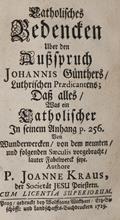 Catholisches
Bedencken
Uber den
Außspruch
JOHANNIS Günthers/
Luthrischen PRÆDICANTENS;
Daß alles/
Was ein
Catholischer
In seinem Anhang p. 256.
Von
Wunderwercken/ von dem neunten/
und folgenden Sæculis vorgebracht/
lauter Fabelwerck seye.
Authore
P. JOANNE KRAUS,
der Societät JESU Priestern.
CUM LICENTIA SUPERIORUM.
Prag/ gedruckt bey Wolffgang Wickhart/